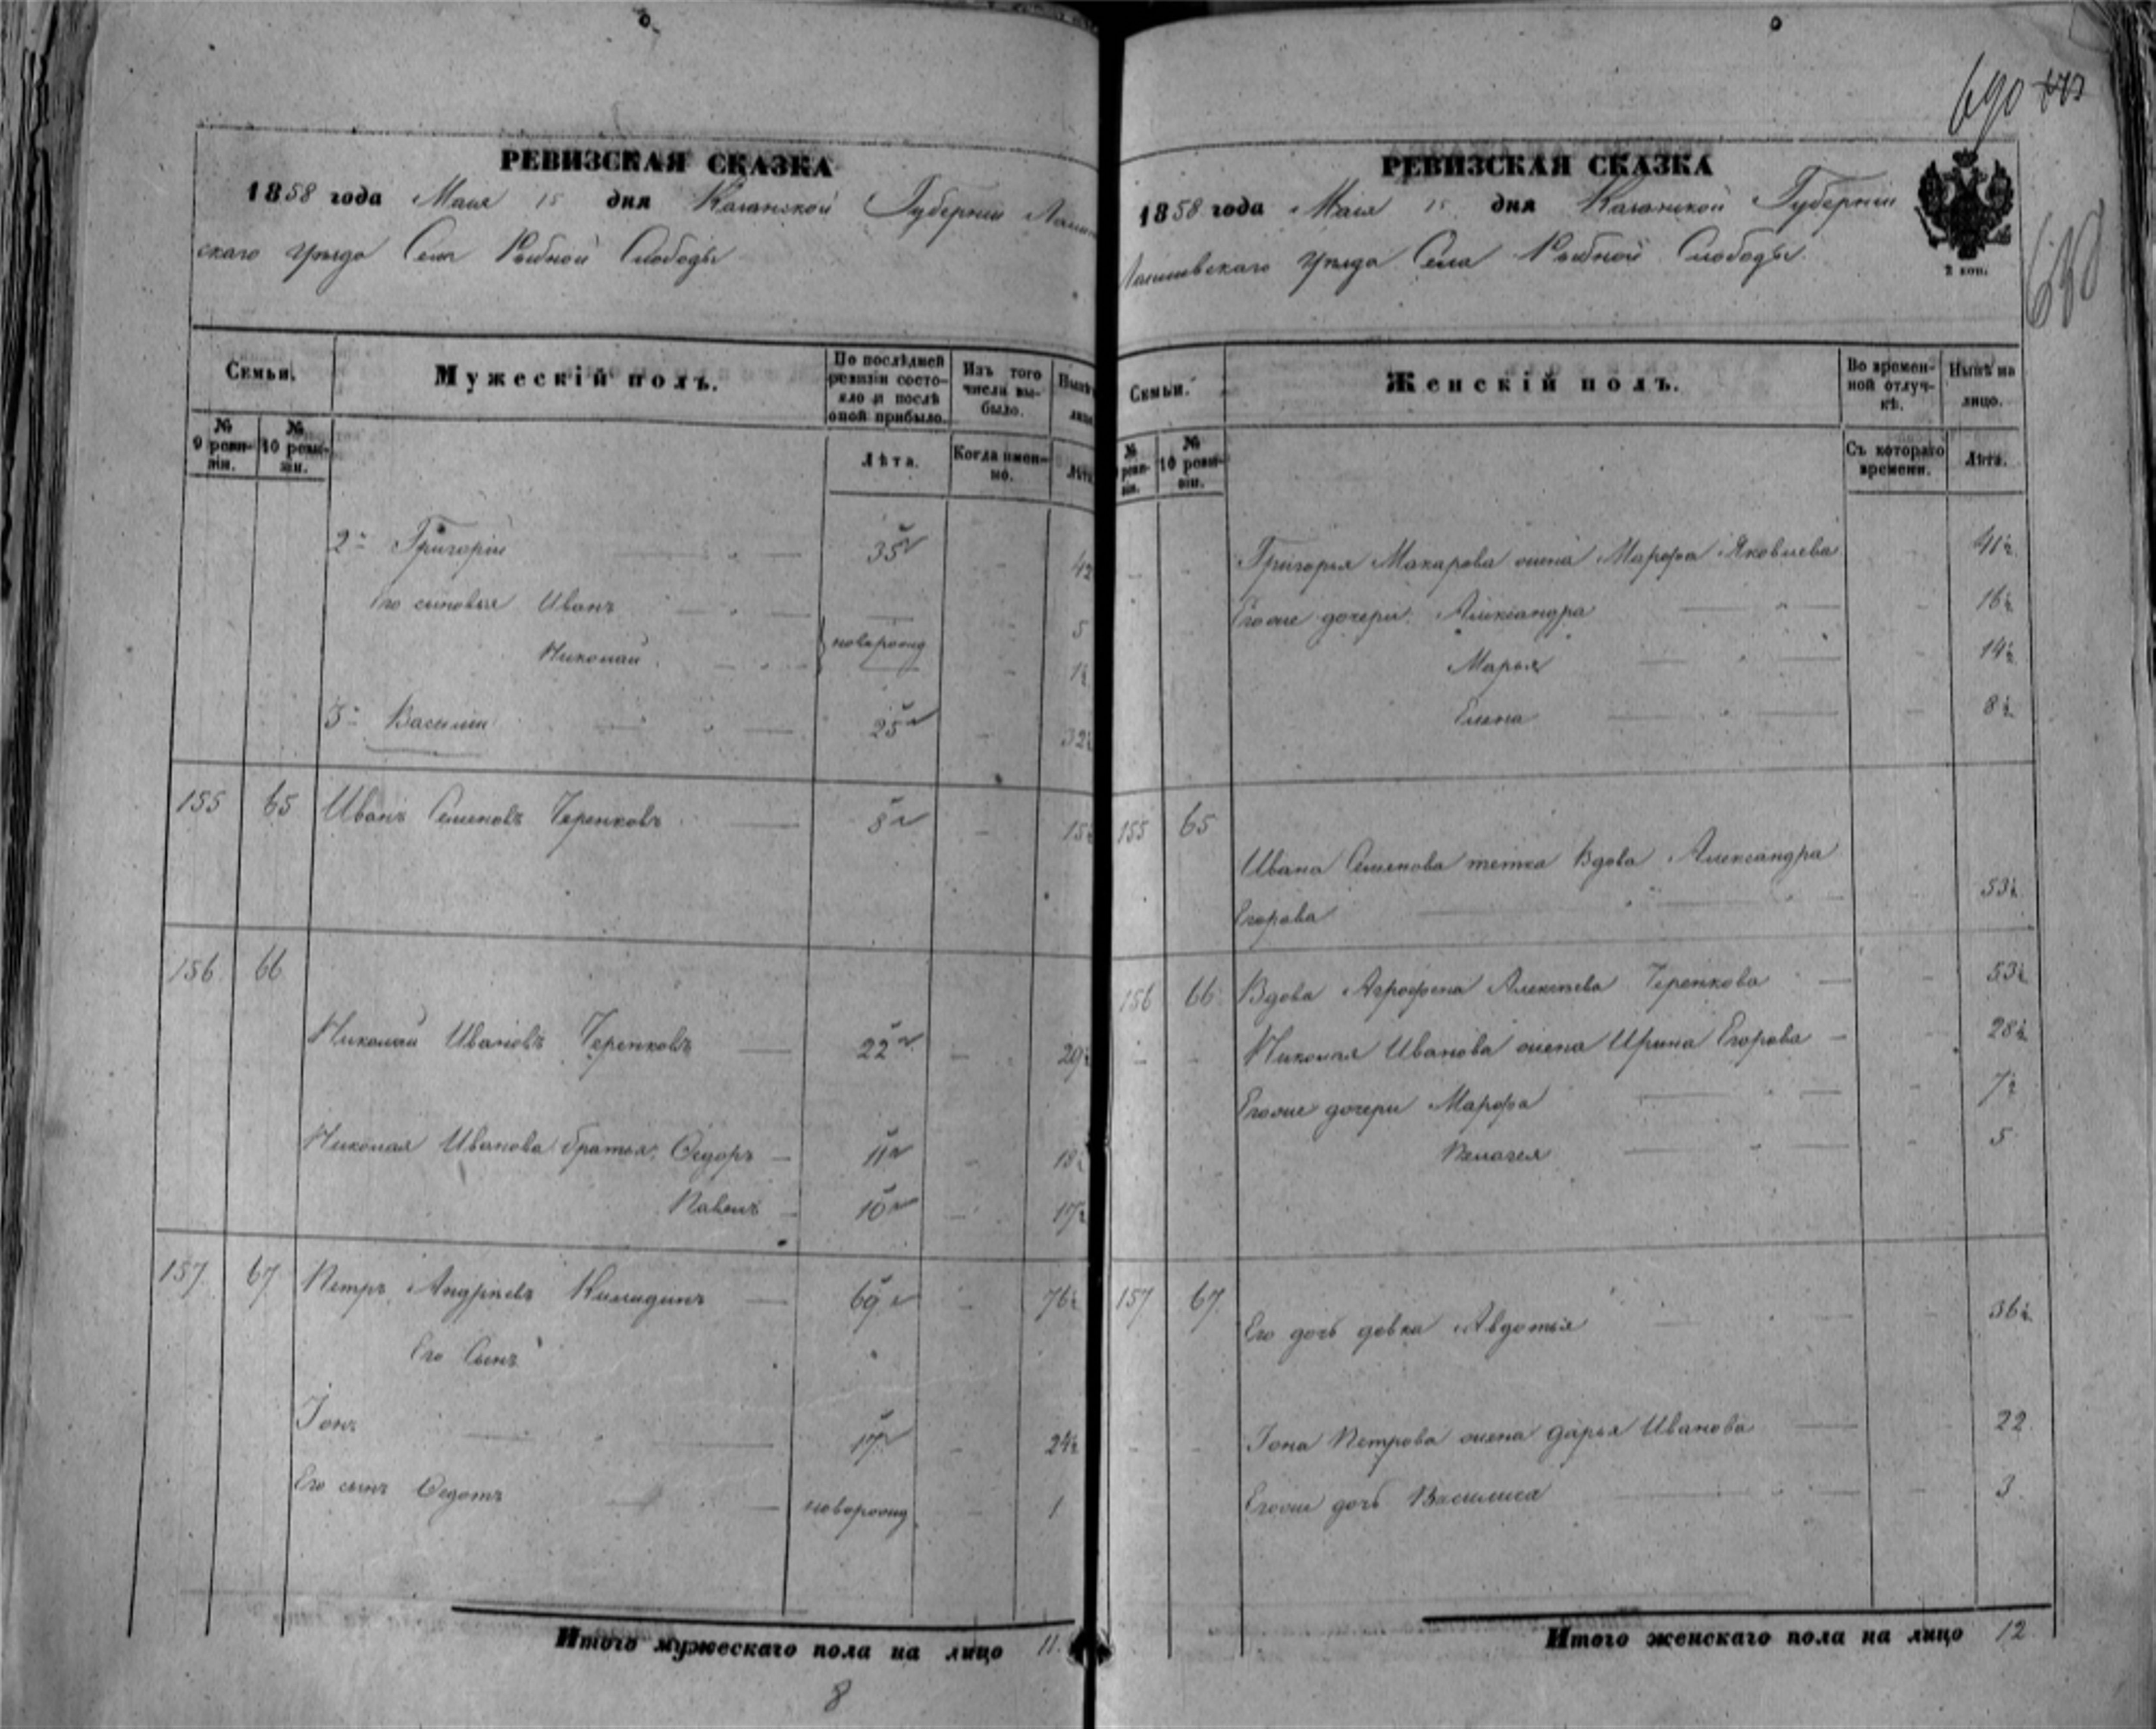 РЕВИЗСКАЯ СКАЗКА
1858 года Мая 15 дня Казанской Губерніи Лаиш
скаго уѣзда Села Рыбной Слободы
Семьи.
Мужескій полъ.
По послѣдней ревизіи состояло и послѣ оной прибыло.
Изъ того числа выбыло.
Нынѣ
лицо
№ 9 ревизіи.
№ 10 ревизіи.
Лѣта.
Когда именно.
Лѣта
2й Григорій 35 42
Его сыновья Иванъ 5
новорожд
Николай 1½
3й Василій 25 32½
155 65 Иванъ Семеновъ Черенковъ 8 15½
156 66
Николай Ивановъ Черенковъ 22 29½
Николая Иванова братья: Ѳедоръ 11 18½
Павелъ 10 17½
157 67 Петръ Андреевъ 69 76½
Его Сынъ
Іона 17 24½
Его сынъ Ѳедотъ новорожд. 1
Итого мужескаго пола на лицо 11.
8
690
690
РЕВИЗСКАЯ СКАЗКА
1858 года Мая 15 дня Казанской Губерніи
Лаишевскаго уѣзда Села Рыбной Слободы
2 коп.
Семьи.
Женскій полъ.
Во временной отлучкѣ.
Нынѣ на лицо.
№ ревизіи.
№ 10 ревизіи.
Съ котораго времени.
Лѣта.
Григорья Макарова жена Марфа Яковлева 41½
Егоже дочери: Александра 16½
Марья 14½
Елена 8½
155 65
Ивана Семенова тетка Вдова Александра
Егорова 53½
156 66 Вдова Агрофена Алексѣева Черенкова 53½
Николая Иванова жена Ирина Егорова 28½
Егоже дочери Марфа 7½
Пелагея 5
157 67 Его дочь девка Авдотья 36½
Іона Петрова жена Дарья Иванова 22
Егоже дочь Василиса 3
Итого женскаго пола на лицо 12